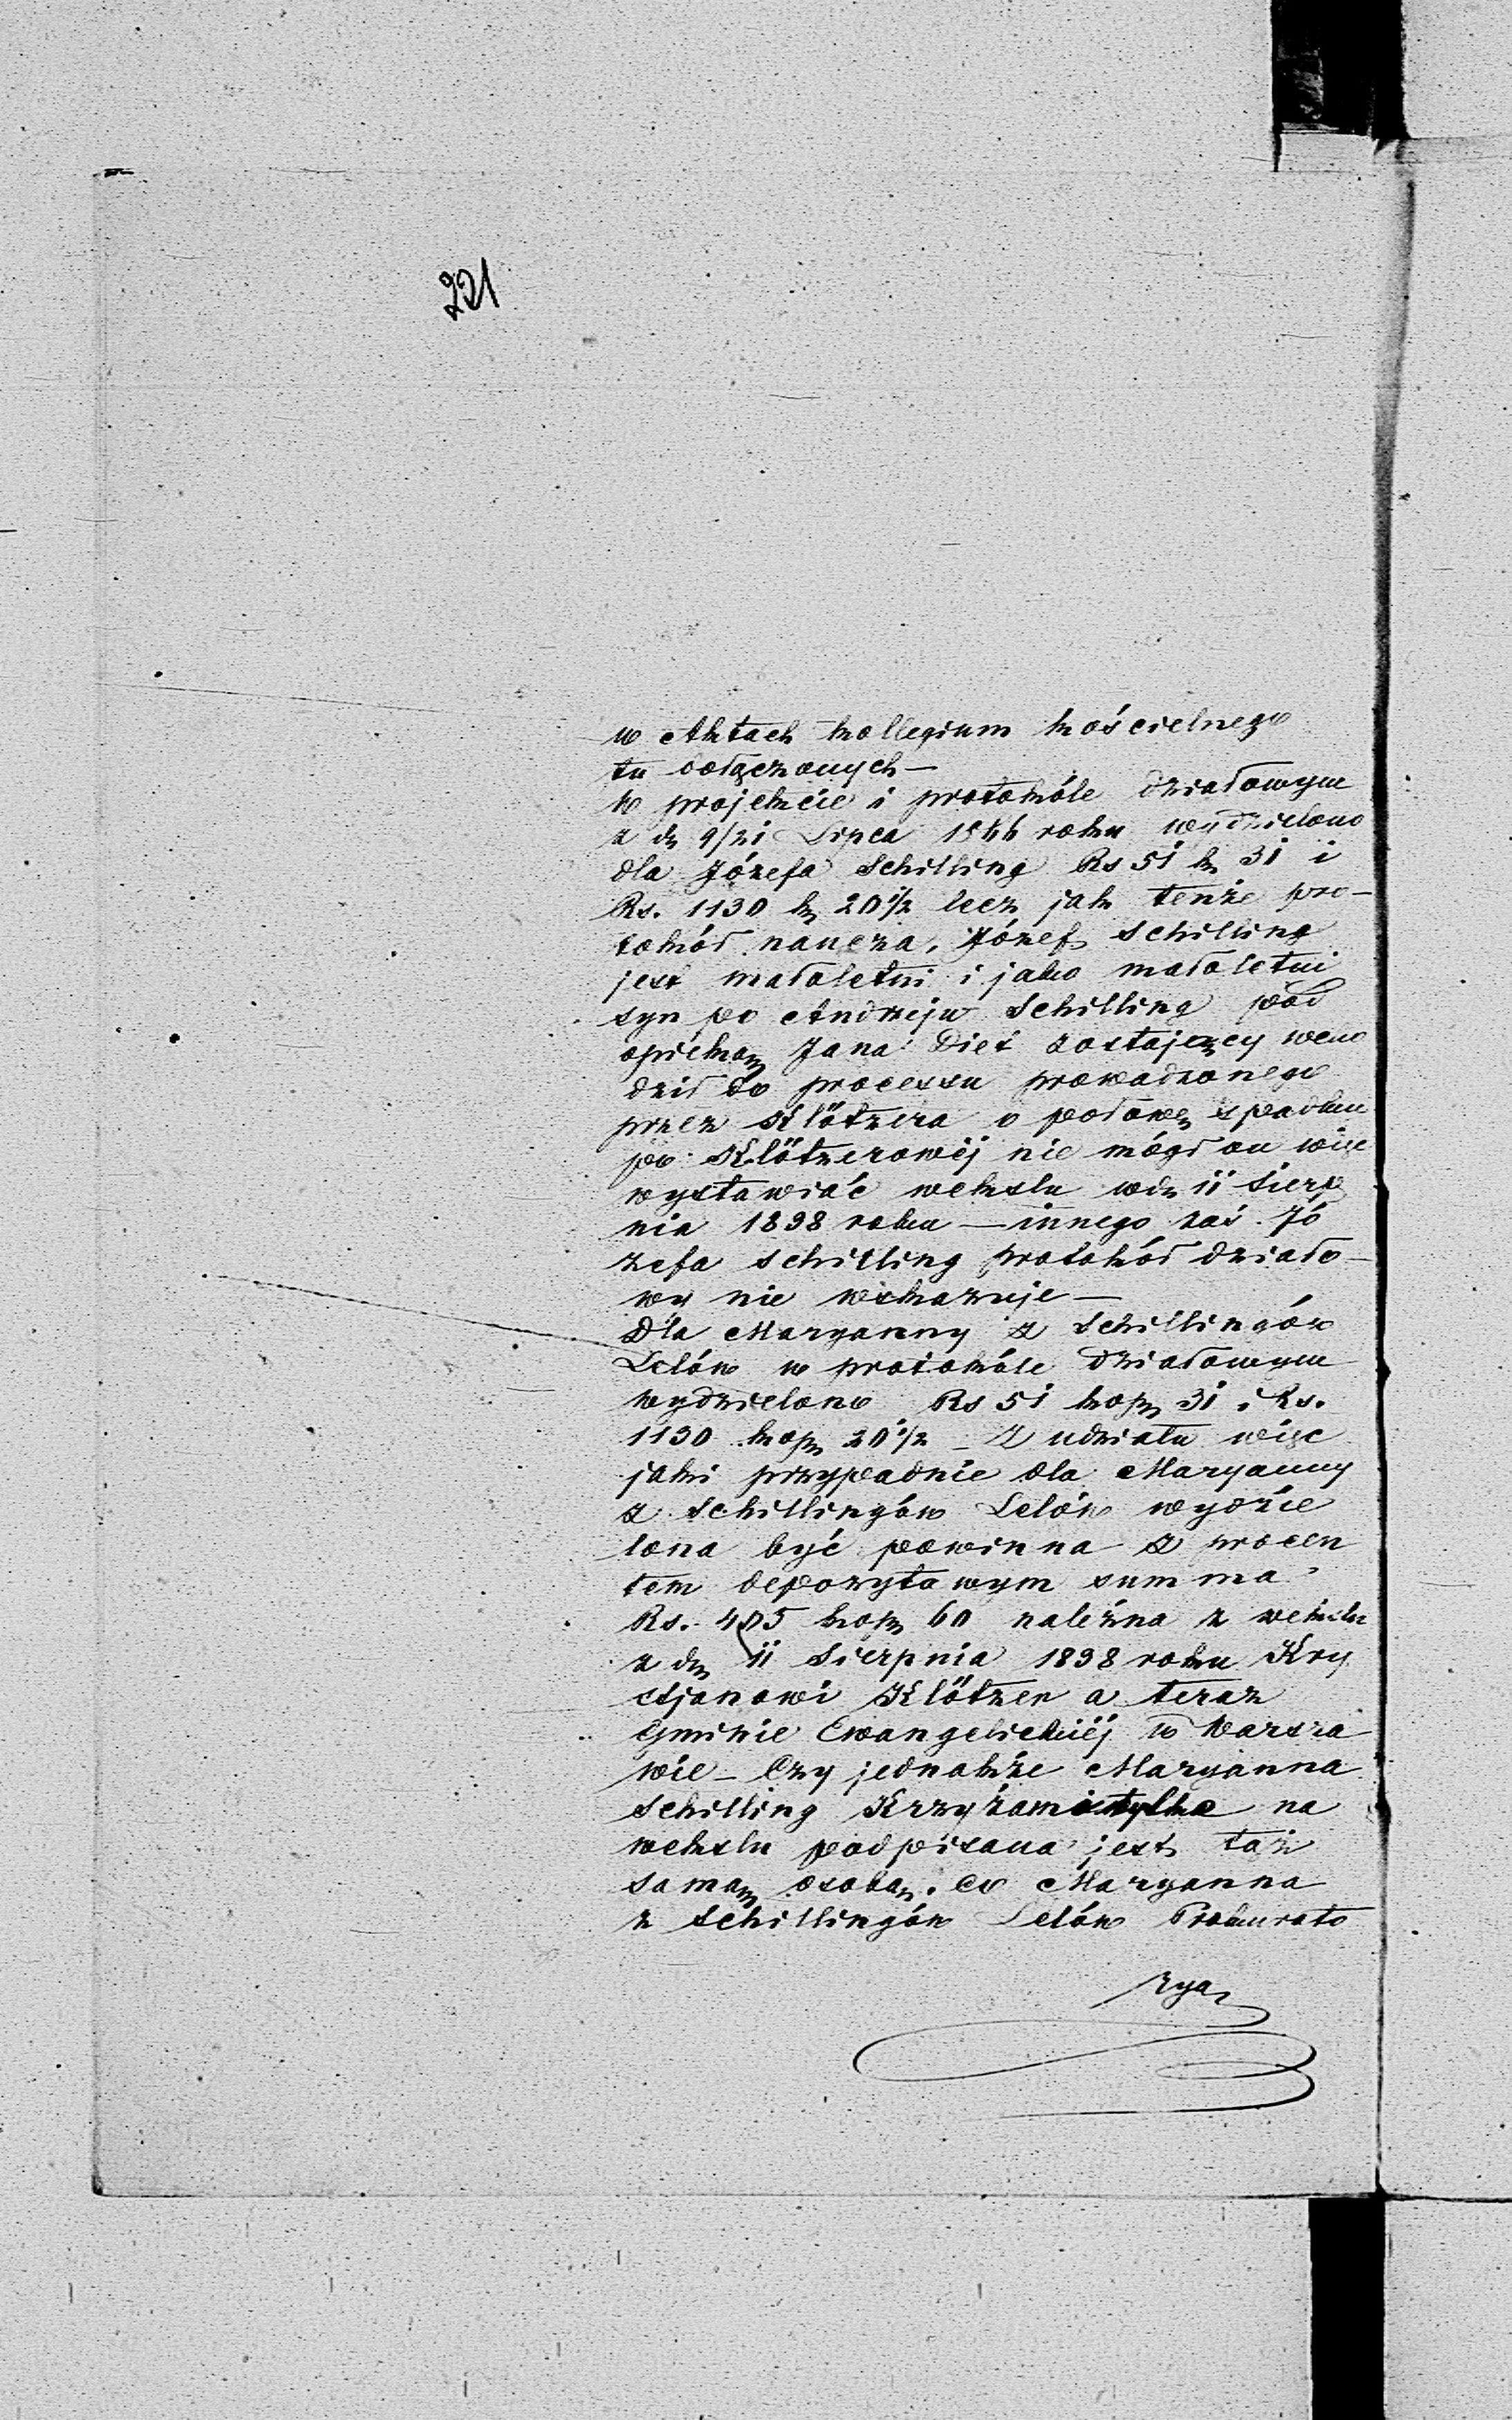 221
w Aktach kollegium kościelnego
tu dołączonych —
W projekcie i protokóle działowym
z dn 9/21 Lipca 1866 roku wydzielono
dla Józefa Schilling Rs 51 k 31 i
Rs. 1130 k 20 1/2 lecz jak tenże pro-
tokół naucza, Józef Schilling
jest małoletni i jako małoletni
syn po Andrzeju Schilling pod
opieką Jana Diet zostający wcho
dził do processu prowadzonego
przez Klötzera o połowę spadku
po Klötzerowéj nie mógł on więc
wystawiać wekslu w dn 11 Sierp
nia 1838 roku — innego zaś Jó
zefa Schilling protokół działo-
wy nie wskazuje —
Dla Maryanny z Schillingów
Lelów w protokóle działowym
wydzielono Rs 51 kop 31 i Rs.
1130 kop 20 1/2 — Z udziału więc
jaki przypadnie dla Maryanny
z Schillingów Lelów wydzie
lona być powinna z procen
tem depozytowym summa
Rs. 405 kop 60 należna z wekslu
z dn 11 Sierpnia 1838 roku Kry
stjanowi Klötzer a teraz
Gminie Ewangelickiéj w Warsza
wie — Czy jednakże Maryanna
Schilling Krzyżami tylko na
wekslu podpisana jest taż
samą osobą, co Maryanna
z Schillingów Lelów Prokurato
rya